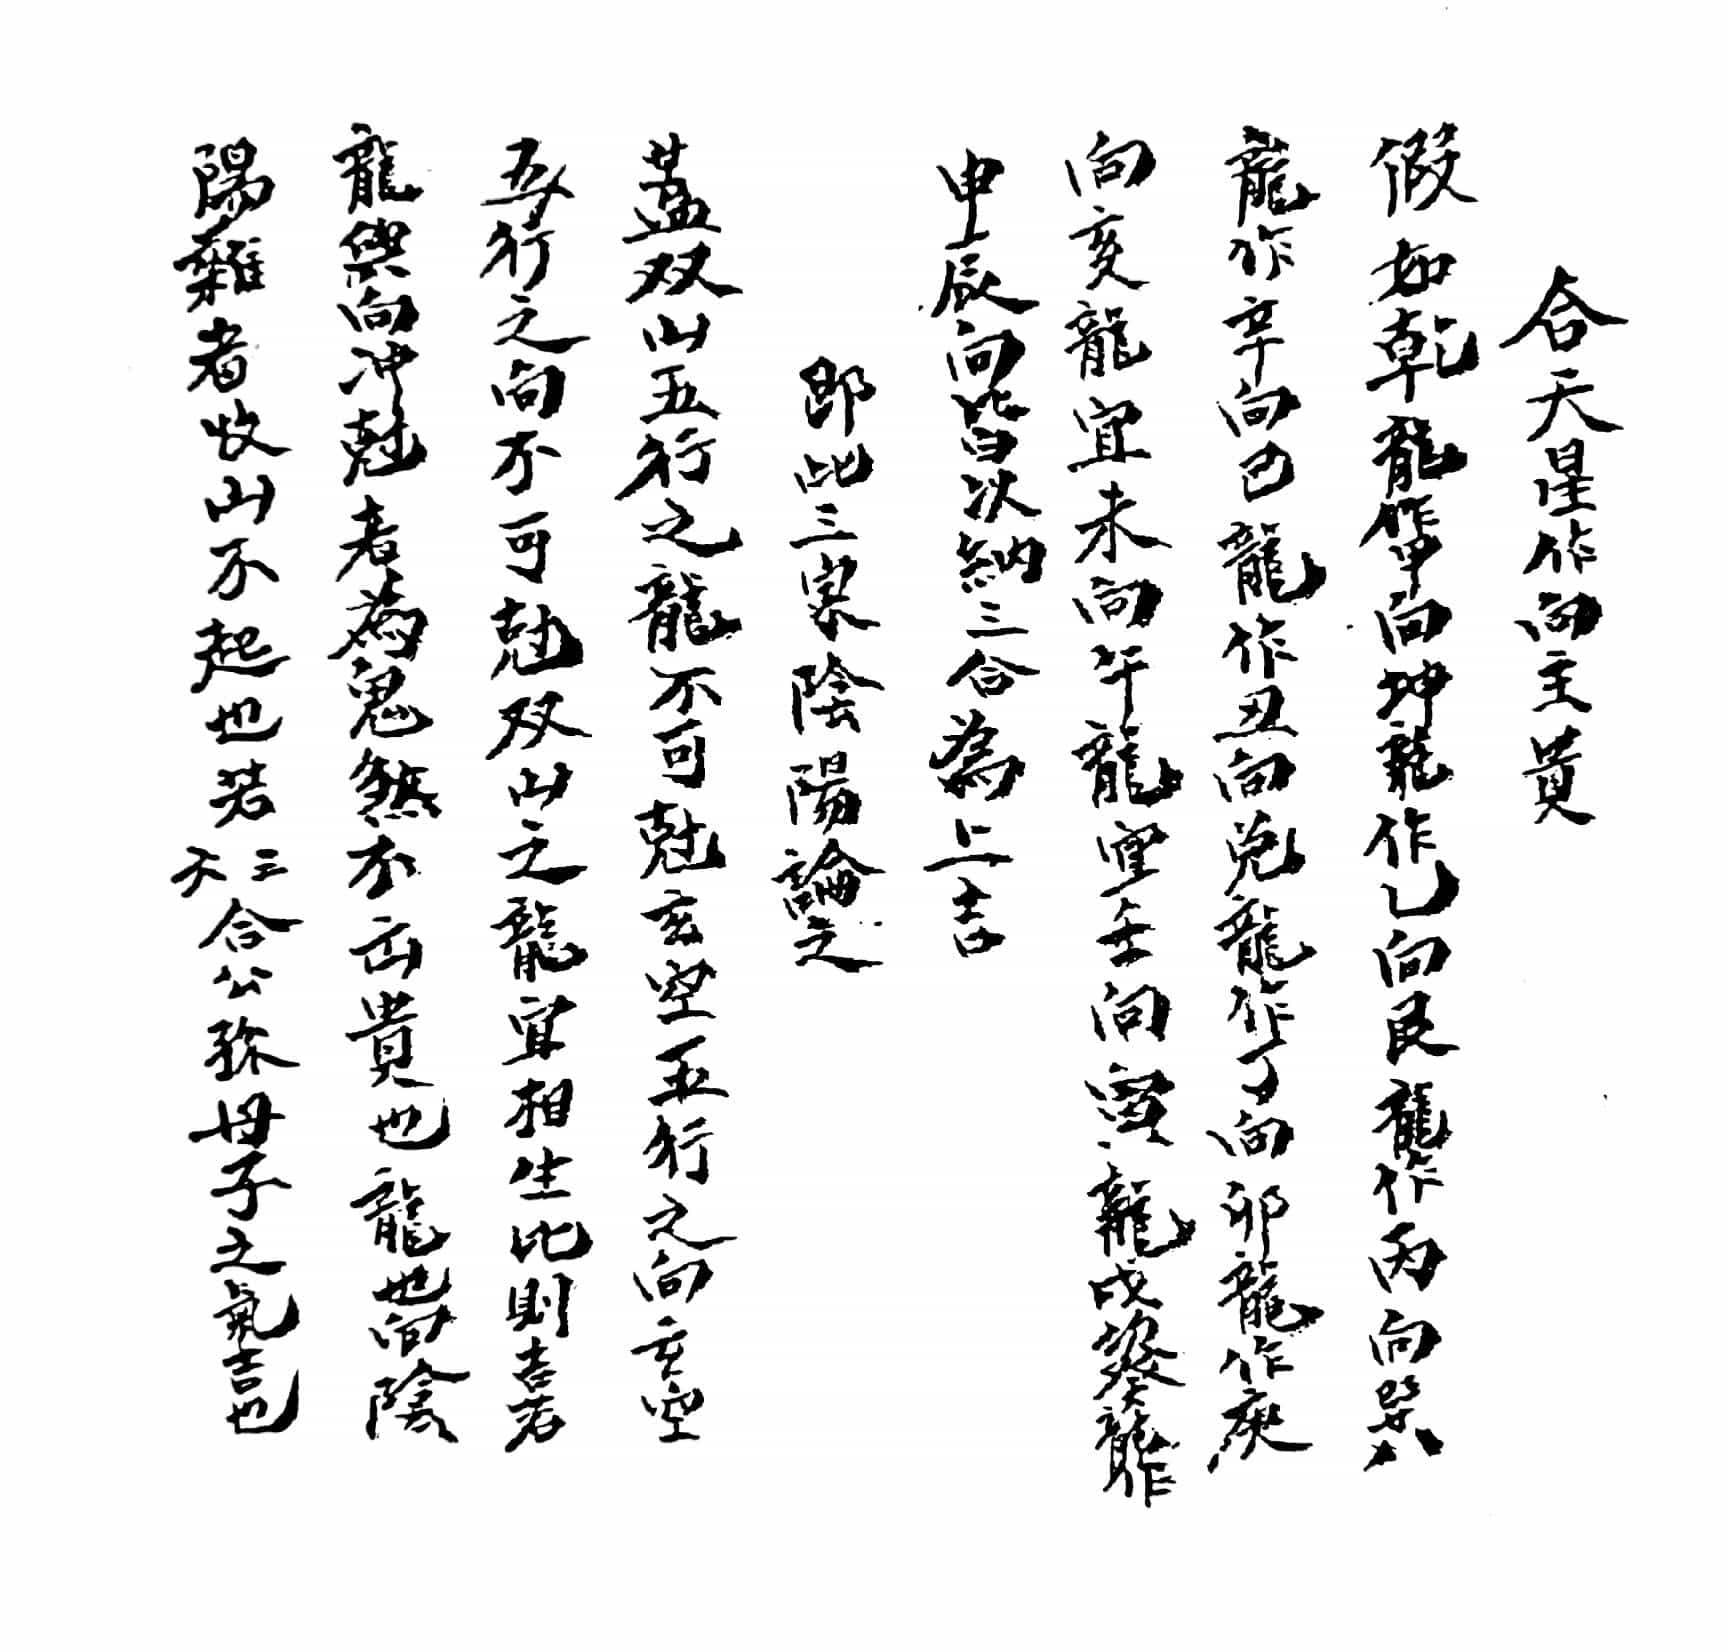 合天星作向主貴
假如乾龍作甲向坤龍作乙向艮龍作丙向巽
龍作辛向巴龍作丑向兌龍作丁向卯龍作庚
向亥龍宜未向午龍宜壬向寅龍戌癸龍作
申辰向皆以納三合為上吉
即此三家陰陽論之
蓋双山五行之龍不可尅玄空五行之向玄空
五行之向不可尅双山之龍宜相生比則吉若
龍與向冲尅者為鬼煞不而貴也龍也向陰
陽雜者收山不起也若三不合公孫母子之氣吉也